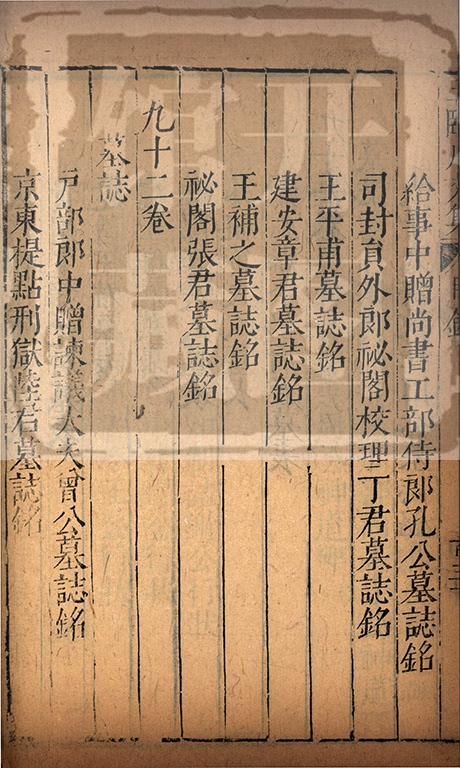 給事中贈尚書工部侍郎孔公墓誌銘
司封員外郎祕閣校理丁君墓誌銘
王平甫墓誌銘
建安章君墓誌銘
王補之墓誌銘
祕閣張君墓誌銘
九十二卷
墓誌
戸部郎中贈諫議大夫曾公墓誌銘
京東提點刑獄陸君墓誌銘